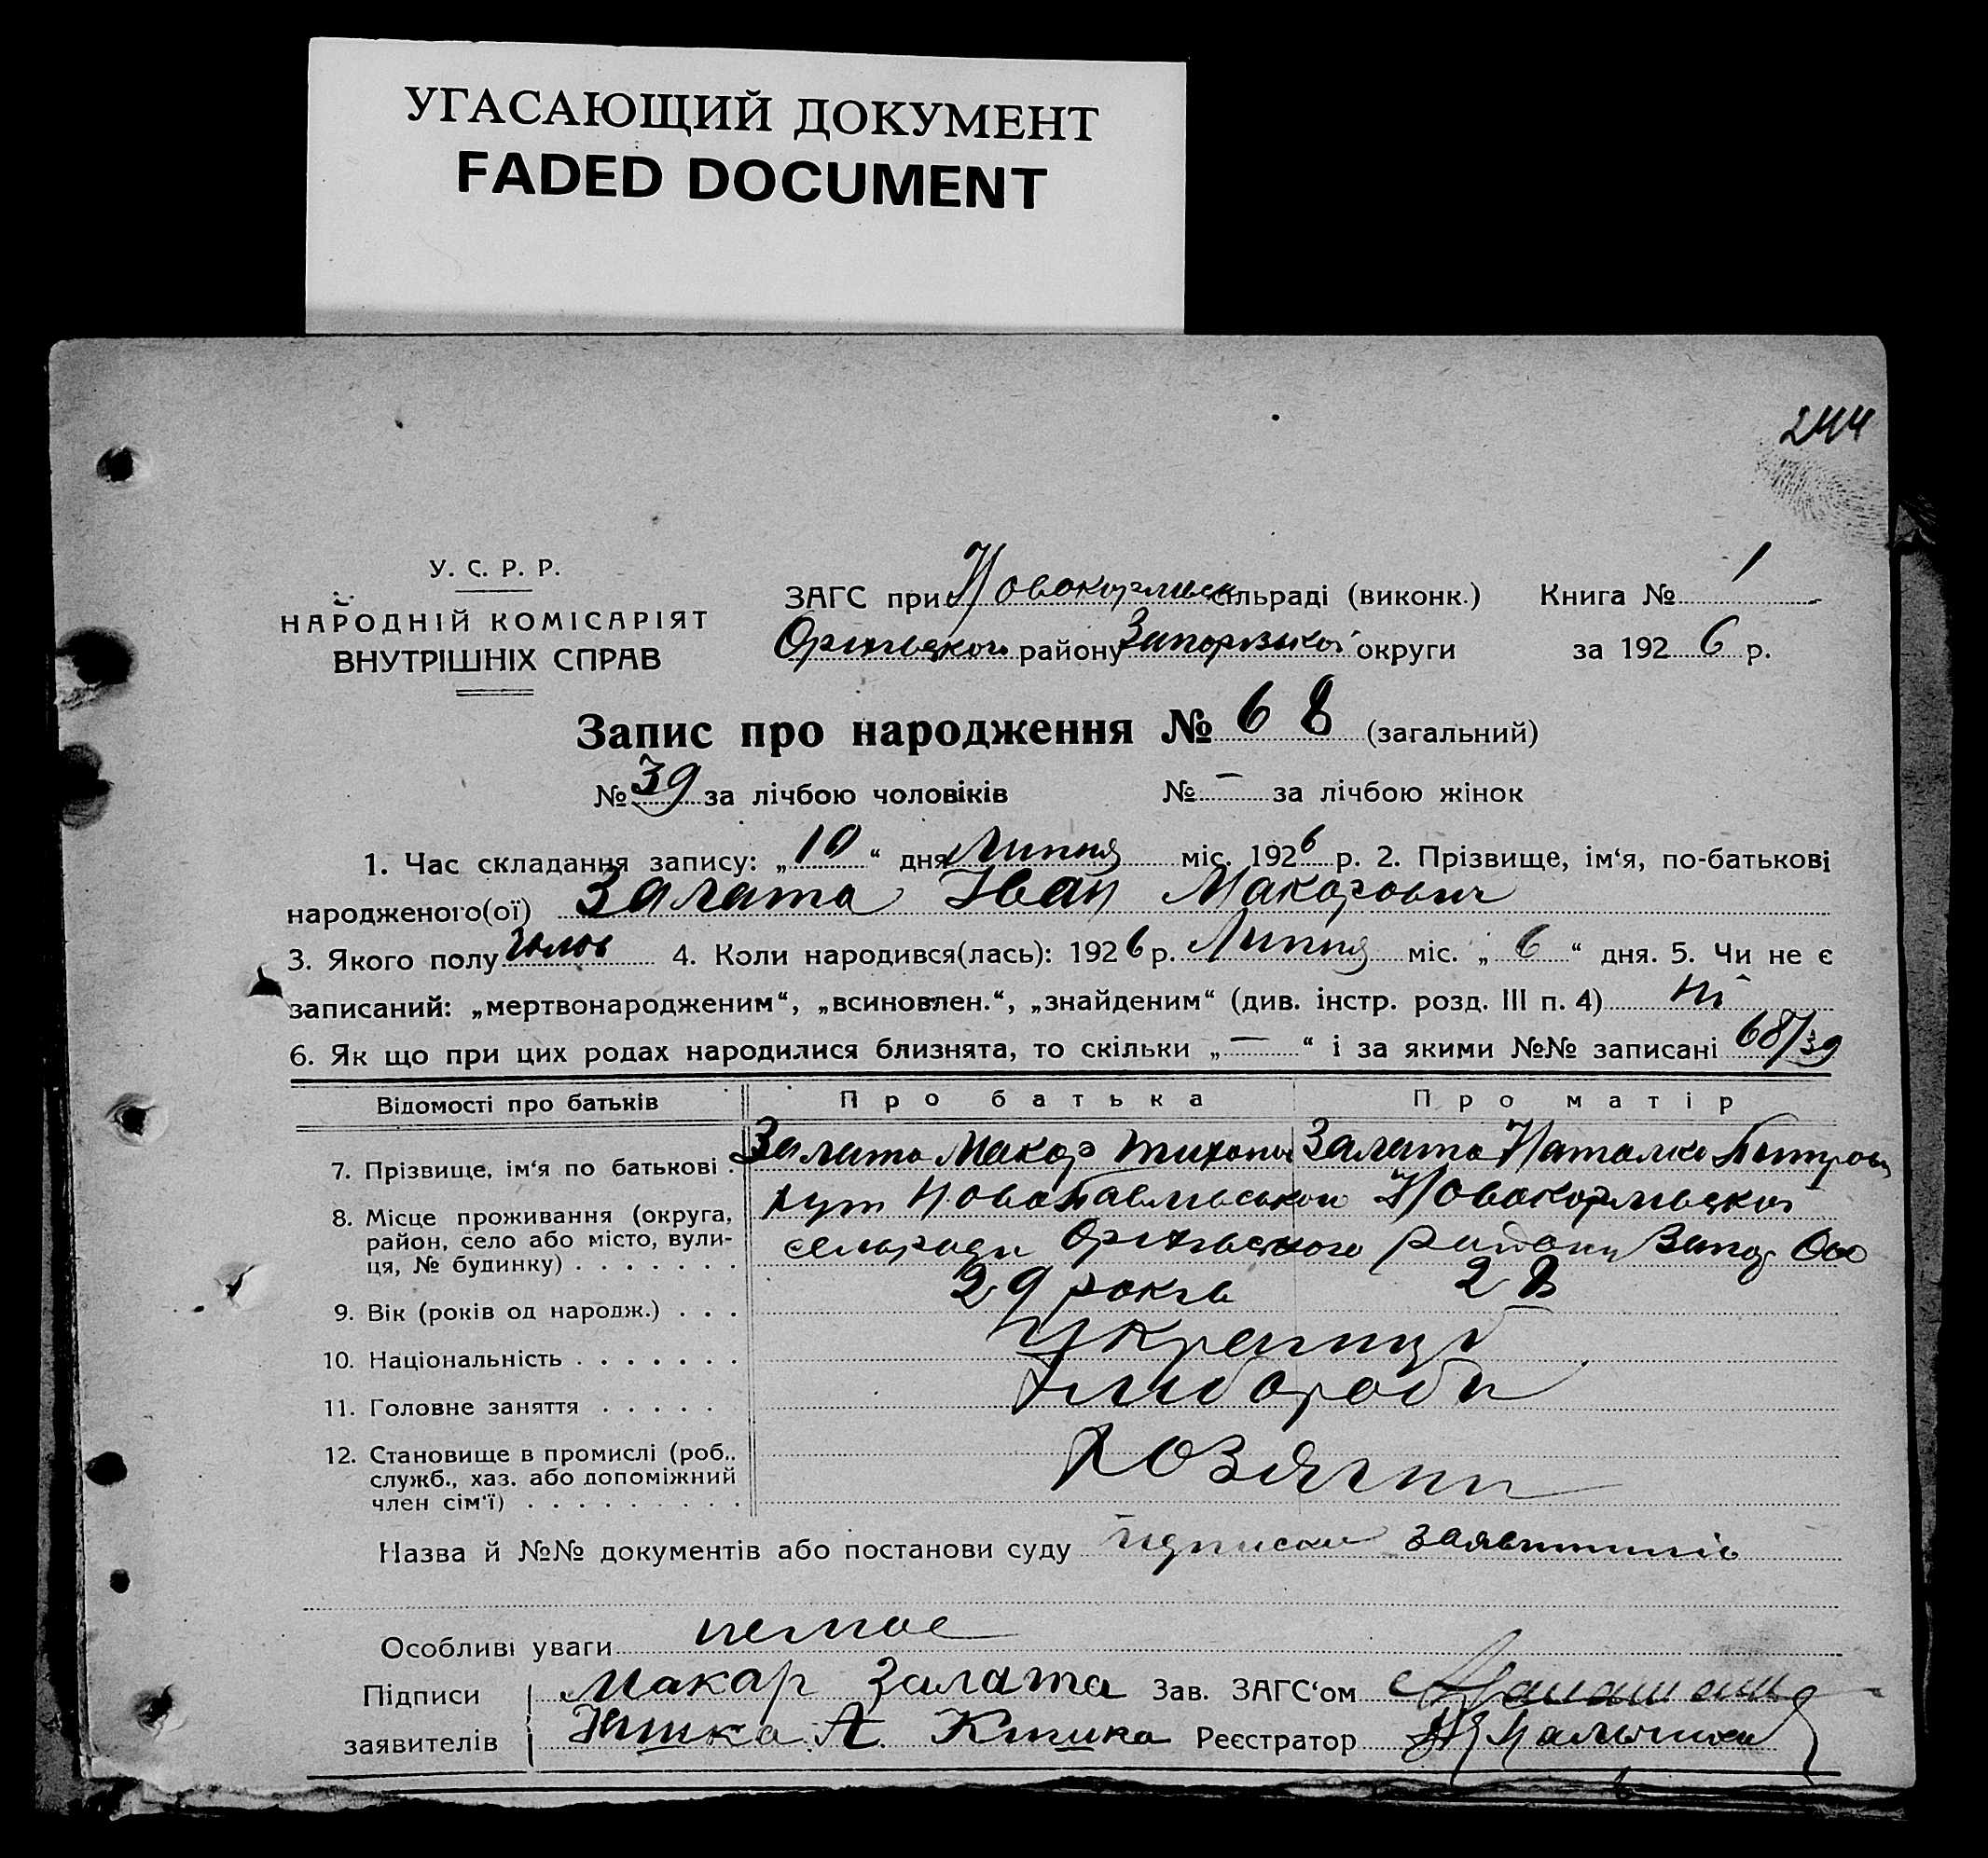 УГАСАЮЩИЙ ДОКУМЕНТ
FADED DOCUMENT
244
У. С. Р. Р.
НАРОДНІЙ КОМІСАРІЯТ
ВНУТРІШНІХ СПРАВ
ЗАГС при сільраді (виконк.) Книга № 1
району Запорізької округи за 1926 р.
Запис про народження № 68 (загальний)
№ 39 за лічбою чоловіків № — за лічбою жінок
1. Час складання запису: „10“ дня Липня міс. 1926 р. 2. Прізвище, ім‘я, по-батькові
народженого(ої) Залата Іван Макарович
3. Якого полу 4. Коли народився(лась): 1926 р. Липня міс. „6“ дня. 5. Чи не є
записаний: „мертвонародженим“, „всиновлен.“, „знайденим“ (див. інстр. розд. III п. 4) Ні
6. Як що при цих родах народилися близнята, то скільки „—“ і за якими №№ записані 68/39
Відомості про батьків Про батька Про матір
7. Прізвище, ім‘я по батькові . Залата Макар Залата Наталка
8. Місце проживання (округа, хут
район, село або місто, вули- сельради району Запор
ця, № будинку) . . . . . . .
9. Вік (років од народж.) . . . 29 років 28
10. Національність . . . . . . . Українці
11. Головне заняття . . . . . Хлібороби
12. Становище в промислі (роб..
служб., хаз. або допоміжний
член сім‘ї) . . . . . . . . .
Назва й №№ документів або постанови суду підписки заявителів
Особливі уваги немає
Підписи Макар Залата Зав. ЗАГС‘ом
заявителів А. Реєстратор